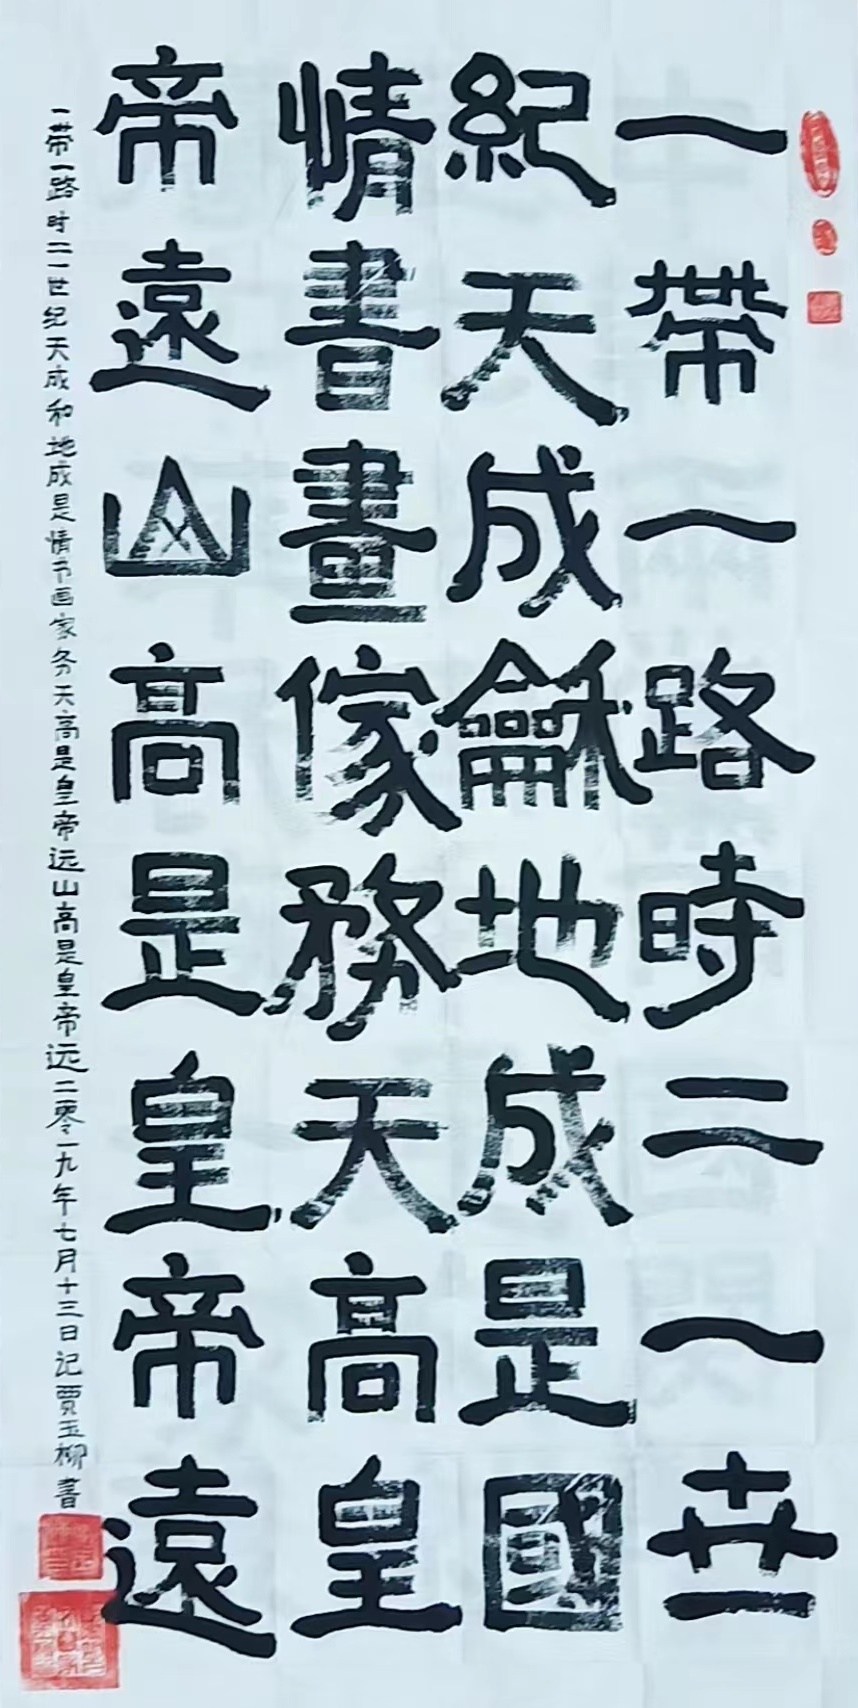 一帶一路時二一世
紀天成龢地成是國
情書畫傢務天高皇
帝遠山高是皇帝遠
一带一路时二一世纪天成和地成是情书画家务天高是皇帝远山高是皇帝远二零一九年七月十三日记贾玉柳书